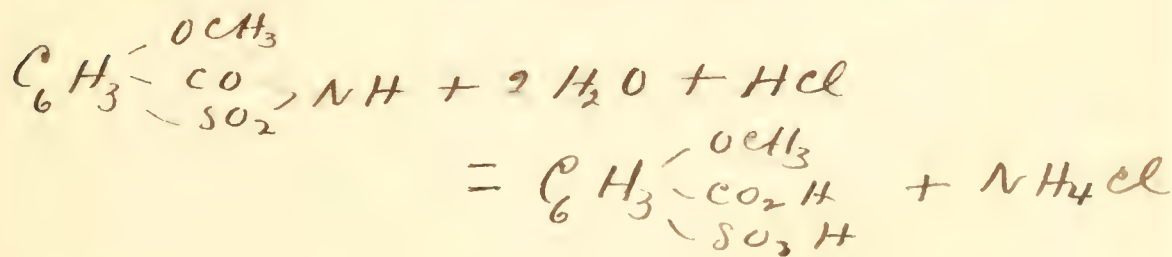 C₆H₃ OCH₃ CO SO₂ > NH + 2 H₂O + HCl
= C₆H₃ OCH₃ CO₂H SO₃H + NH₄Cl